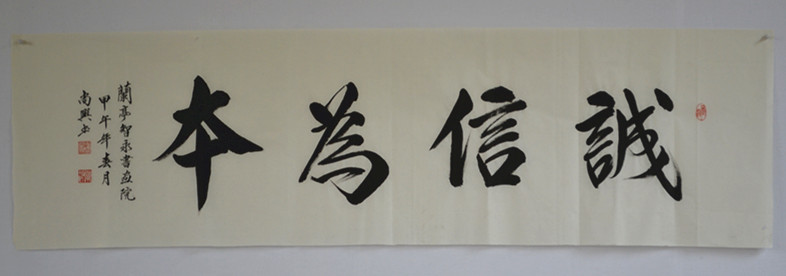 誠信為本
蘭亭智永書画院
甲午年癸月
尚興書